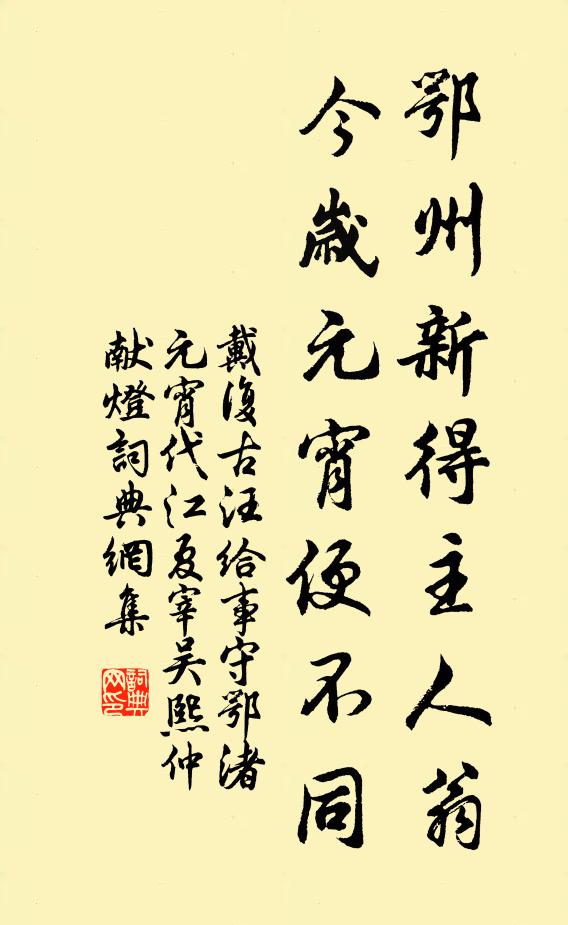 鄂州新得主人翁
今歲元宵便不同
戴復古汪給事守鄂渚
元宵代江夏宰吴熙仲
献燈詞典網集
詞典
网印